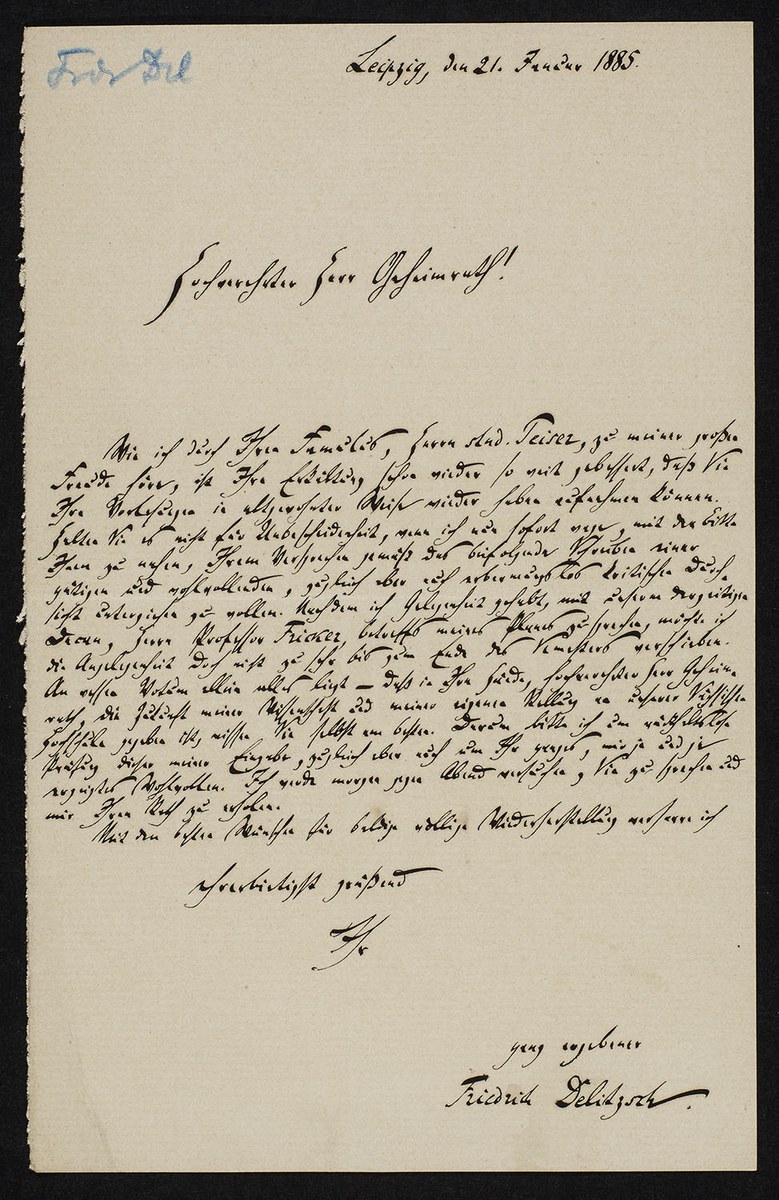 Frdr Del
Leipzig, den 21. Januar 1885.
Hochverehrter Herr Geheimrath!
Wie ich durch Ihren Famulus, Herrn stud. Teiser, zu meiner großen
Freude höre, ist Ihre Erkältung schon wieder so weit gebessert, daß Sie
Ihre Vorlesungen in altgewohnter Weise wieder haben aufnehmen können.
Halten Sie es nicht für Unbescheidenheit, wenn ich nun sofort wage, mit der Bitte
Ihnen zu nahen, Ihrem Versprechen gemäß das beifolgende Schreiben einer
gütigen und wohlwollenden, zugleich aber auch erbarmungslos kritischen Durch-
sicht unterziehen zu wollen. Nachdem ich Gelegenheit gehabt, mit unserm derzeitigen
Decan, Herrn Professor Fricker, betreffs meines Planes zu sprechen, möchte ich
die Angelegenheit doch nicht zu sehr bis zum Ende des Semesters verschieben.
An wessen Votum allein alles liegt — daß in Ihre Hände, hochverehrter Herr Geheim-
rath, die Zukunft meiner Wissenschaft und meiner eigenen Stellung an unserer Sächsischen
Hochschule gegeben ist, wissen Sie selbst am besten. Darum bitte ich um rückhaltslose
Prüfung dieser meiner Eingabe, zugleich aber auch um Ihr großes, mir je und je
erzeigtes Wohlwollen. Ich werde morgen gegen Abend versuchen, Sie zu sprechen und
mir Ihren Rath zu erholen.
Mit den besten Wünschen für baldige völlige Wiederherstellung verharre ich
ehrerbietigst grüßend
Ihr
ganz ergebener
Friedrich Delitzsch.